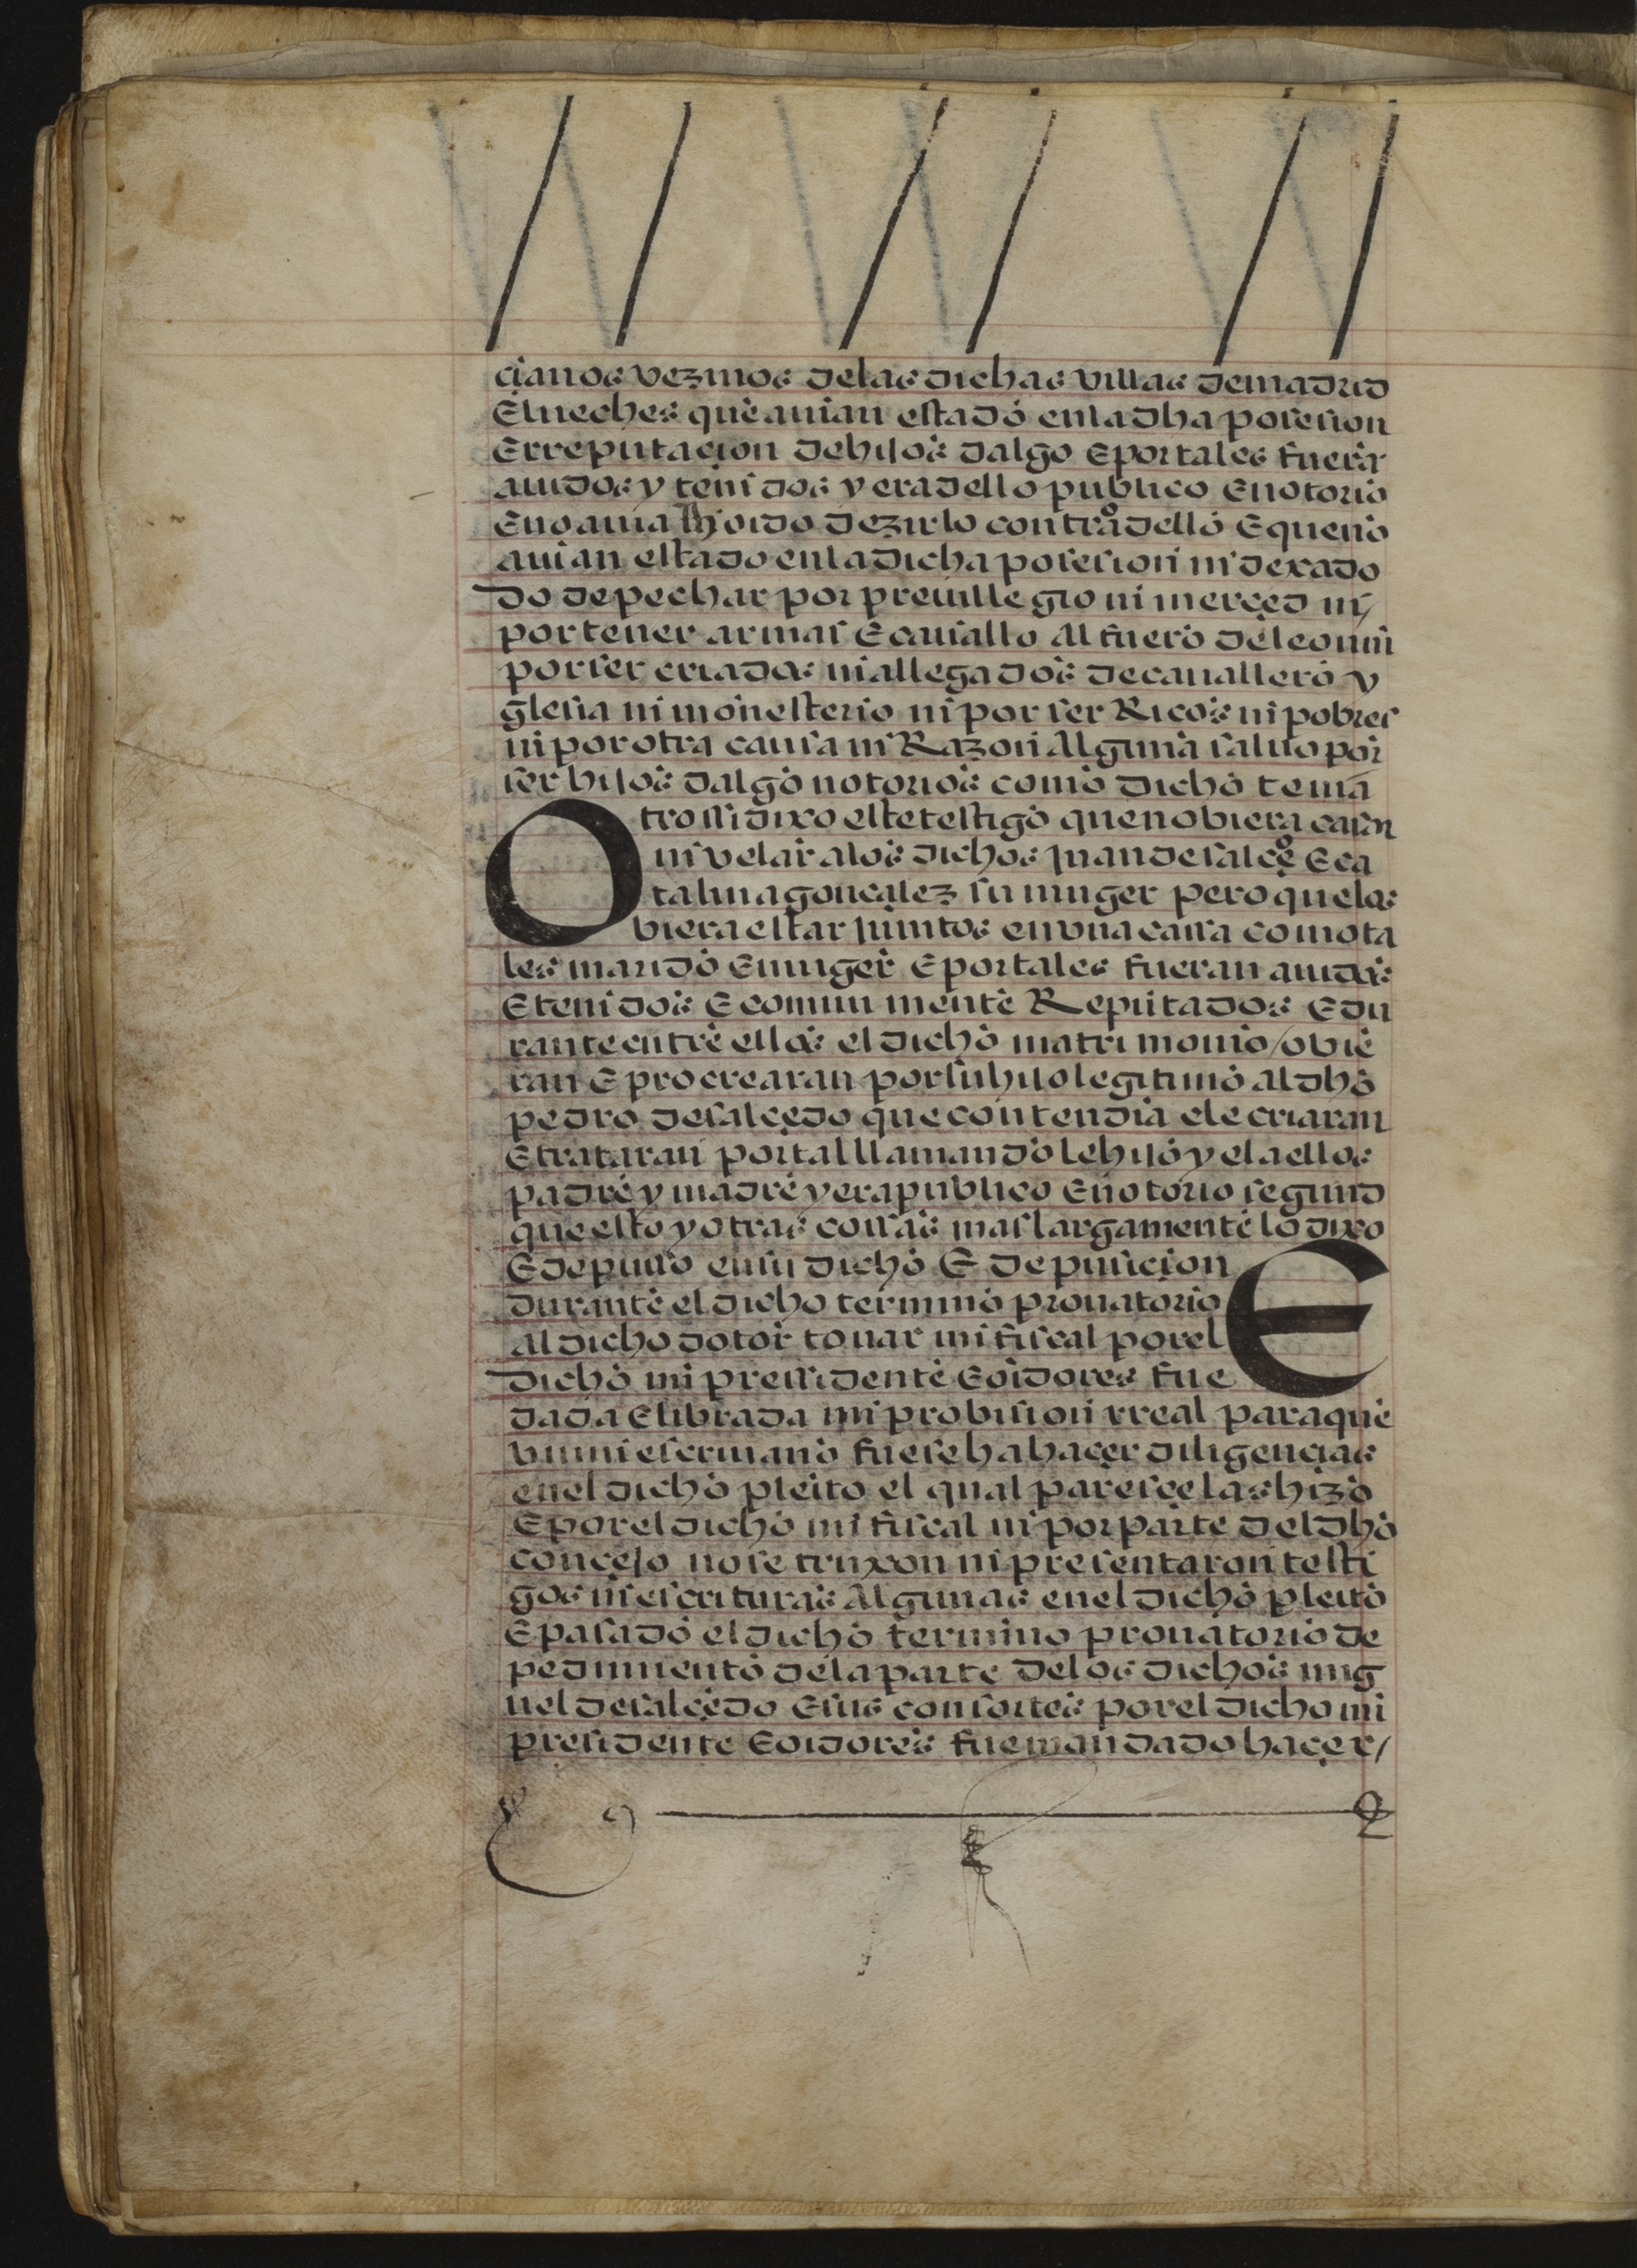 çianos vezinos delas dichas villas demadrid
E lueches que auian estado enla dha posesion
E rreputaçion de hijos dalgo E por tales fuerã
auidos y tenidos y era dello publico E notorio
E no auia oido dezir lo contrº dello E que no
auian estado enla dicha posesion ni dexado
do de pechar por preuillegio ni merçed ni
por tener armas E cauallo Al fuero de leon ni
por ser criados ni allegados de cauallero y
glesia ni monesterio ni por ser Ricos ni pobres
ni por otra causa ni Razon Alguna saluo por
ser hijos dalgo notorios como dicho tenia
Otrossi dixo este testigo que no biera casar
ni velar alos dichos juan de salçeº E ca
talina gonçalez su muger pero que los
biera estar juntos en vna cassa como ta
les marido E muger E por tales fueran auidos
E tenidos E comun mente Reputados E du
rante entre ellos el dicho matrimonio / obie
ran E procrearan por su hijo legitimo Al dho
pedro de salçedo que contendia e le criaran
E trataran por tal llamando le hijo y el a ellos
padre y madre y era publico E notorio segund
que esto y otras cossas mas largamente lo dixo
E depusso en su dicho E depusicion E
durante el dicho termino prouatorio
Al dicho dotor touar mi fiscal por el
dicho mi pressidente E oidores fue
dada E librada mi probision rreal para que
vn mi escriuano fuese ha haçer diligençias
en el dicho pleito el qual paresce las hizo
E por el dicho mi fiscal ni por parte del dho
conçejo no se truxon ni presentaron testi
gos ni escrituras Algunas en el dicho pleito
E pasado el dicho termino prouatorio de
pedimiento de la parte de los dichos mig
uel de salçedo E sus consortes por el dicho mi
presidente E oidores fue mandado haçer /